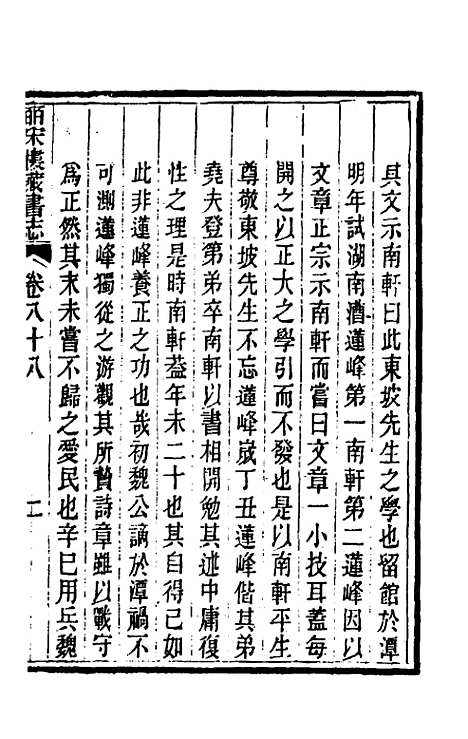 其文示南軒曰此東坡先生之學也留館於潭
明年試湖南漕蓮峰第一南軒第二蓮峰因以
文章正宗示南軒而嘗曰文章一小技耳蓋每
開之以正大之學引而不發也是以南軒平生
尊敬東坡先生不忘蓮峰歲丁丑蓮峰偕其弟
堯夫登第弟卒南軒以書相開勉其述中庸復
性之理是時南軒葢年未二十也其自得已如
此非蓮峰養正之功也哉初魏公謫於潭禍不
可測蓮峰獨從之游觀其所贄詩章雖以戰守
爲正然其末未嘗不歸之愛民也辛巳用兵魏
皕宋樓藏書志
卷八十八